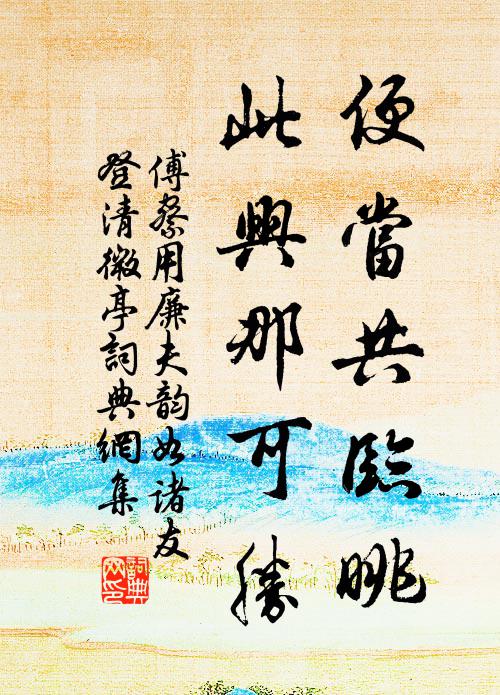 便當共臨眺
此興那可勝
傅察用廉夫韵如諸友
登清微亭詞典網集
詞典
网印